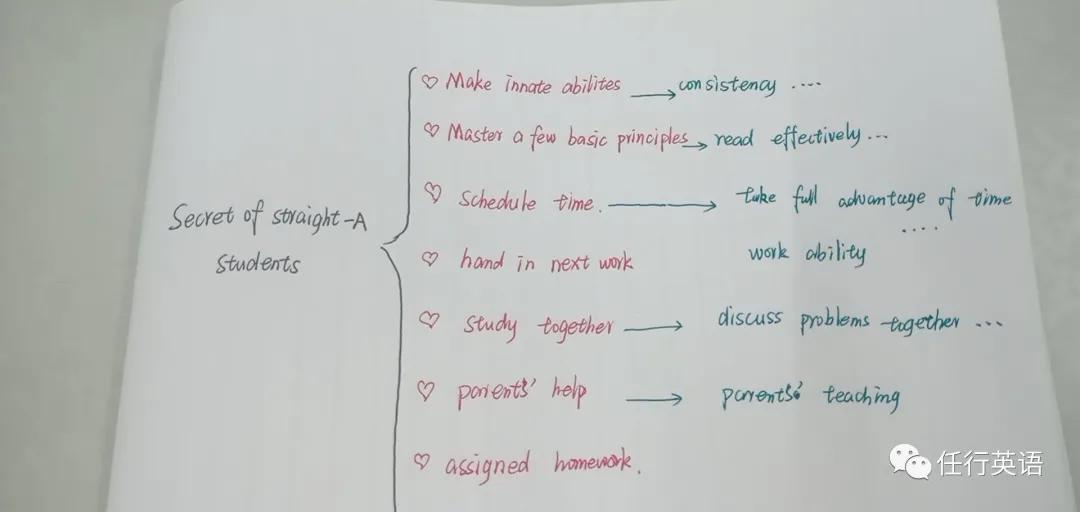 ♡ Make innate abilites → consistency ....
♡ Master a few basic principles → read effectively ...
♡ schedule time. → take full advantage of time
....
Secret of straight-A
students
♡ hand in next work work ability
♡ study together → discuss problems together ...
♡ parents' help → parents' teaching
♡ assigned homework.
任行英语